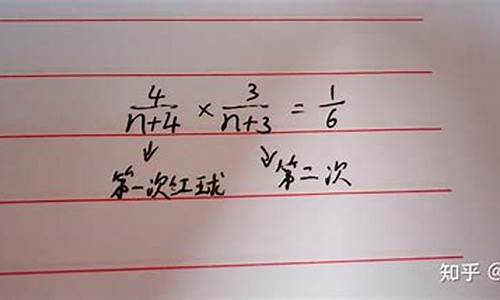 4/(n+4) × 3/(n+3) = 1/6
↓ ↓
第一次红球 第二次
知乎 @